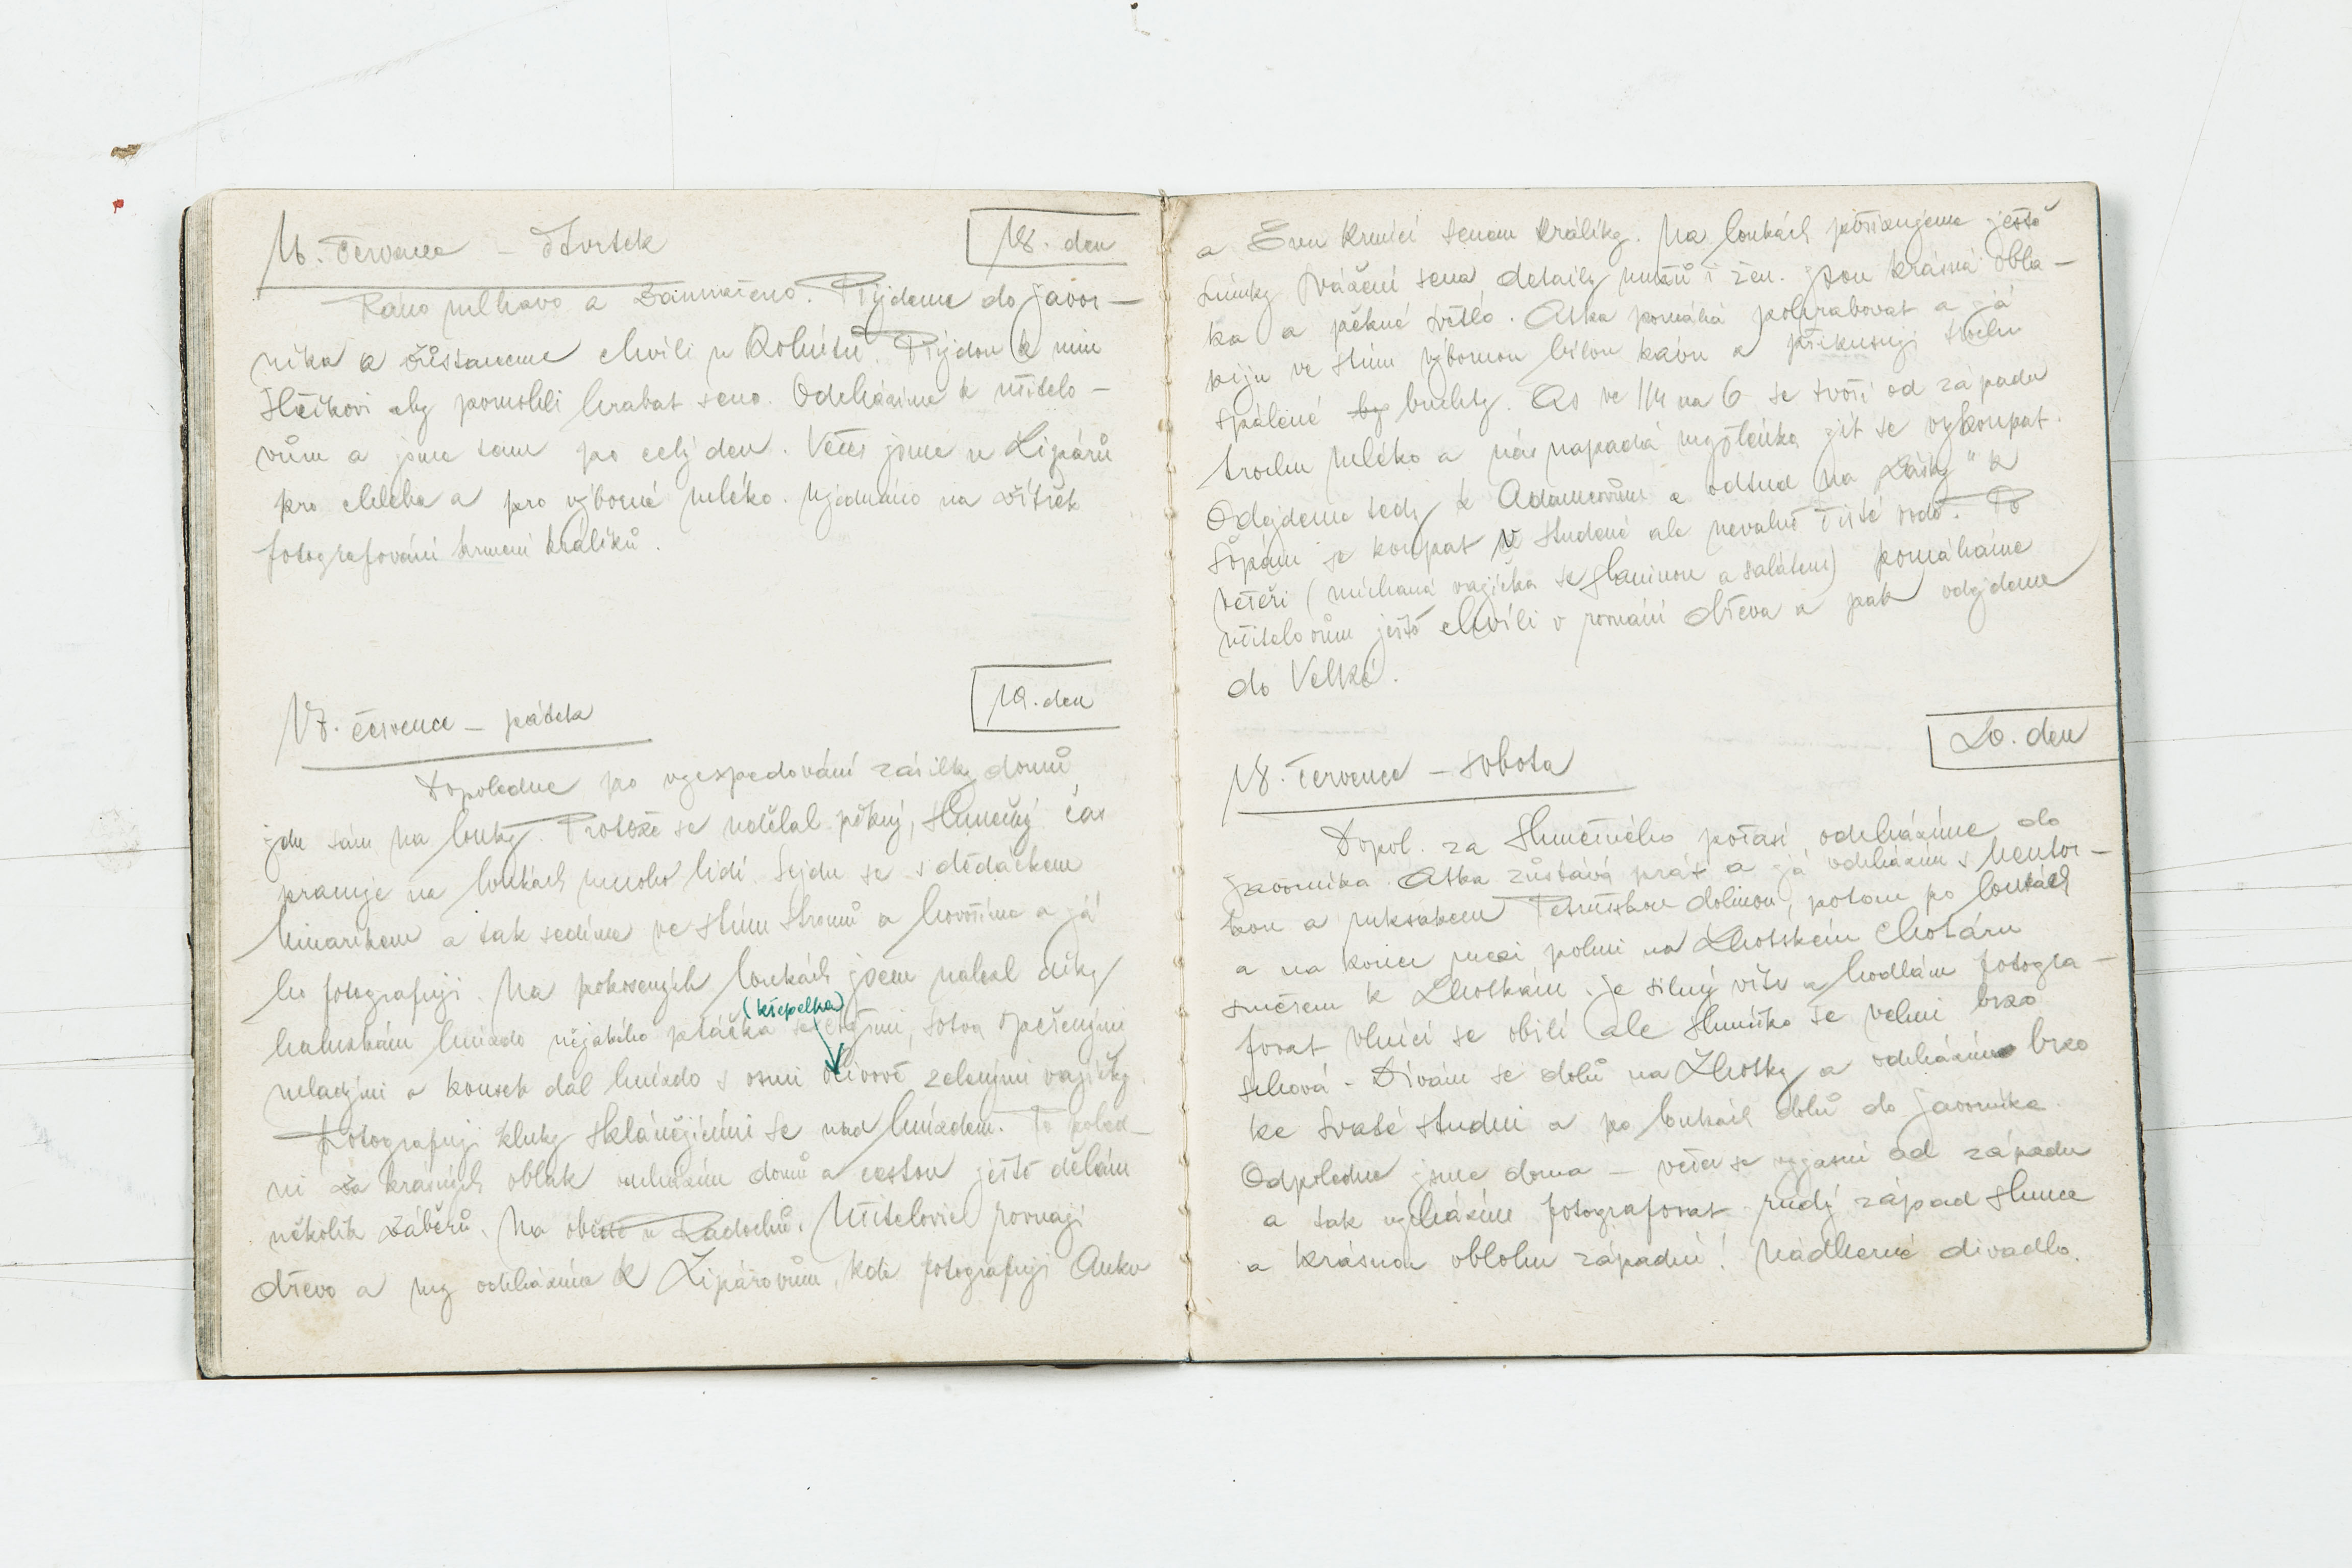 16. července – čtvrtek
18. den
Ráno mlhavo a zamračeno. Přijdeme do Javor-
níka a zůstaneme chvíli u Kohútů. Přijdou k nim
Hříkovi aby pomohli hrabat seno. Odcházíme k učitelo-
vům a jsme tam po celý den. Večer jsme u Lipárů
pro chleba a pro výborné mléko. Ujednáno na zítřek
fotografování krmení králíků.
17. července – pátek
19. den
Dopoledne po vyexpedování zásilky domů
jdu sám na louky. Protože se udělal pěkný, slunečný čas
pracuje na loukách mnoho lidí. Sejdu se s dědáčkem
a tak sedíme ve stínu stromů a hovoříme a já
ho fotografuji. Na pokosených loukách jsem nalezl díky
hniezdo nějakého ptáčka se, sotva opeřenými
(křepelka)
mladými a kousek dál hniezdo s osmi olivově zelenými vajíčky
Fotografuji kluky sklánějícími se nad hniezdem. Po poled-
ni za krásných oblak odcházím domů a cestou ještě dělám
několik záběrů. Na obědě u Radochů. Učitelovic rovnají
dřevo a my odcházíme k Lipárovům, kde fotografuji Anku
a Evu krmící senem králíky. Na loukách pořizujeme ještě
snímky svážení sena, detaily mužů i žen. Jsou krásná obla-
ka a pěkné světlo. Aťka pomáhá pohrabovat a já
piju ve stínu výbornou bílou kávu a přikusuji trochu
spálené by buchty. As ve 1/4 na 6 se tvoří od západu
trochu mléko a nás napadá myšlenka jít se vykoupat.
Odejdeme tedy k Adamcovům a odtud na "Lásky" k
se koupat v studené ale nevalně čisté vodě. Po
večeři (míchaná vajíčka se slaninou a salátem) pomáháme
učitelovům ještě chvíli v rovnání dřeva a pak odejdeme
do Velké.
18. července – sobota
20. den
Dopol. za slunečného počasí odcházíme do
Javorníka. Aťka zůstává prát a já odcházím s Mentor-
kou a ruksakem Petrúškou dolinou, potom po loukách
a na konec mezi polmi na Lhotském Chotáru
směrem k Lhotkám. Je silný vítr a hodlám fotogra-
fovat vlnící se obilí ale sluníčko se velmi brzo
schová. Dívám se dolů na Lhotky a odcházím brzo
ke Svaté studni a po loukách dolů do Javorníka.
Odpoledne jsme doma – večer se vyjasní od západu
a tak vycházíme fotografovat rudý západ slunce
a krásnou oblohu západní! Nádherné divadlo.